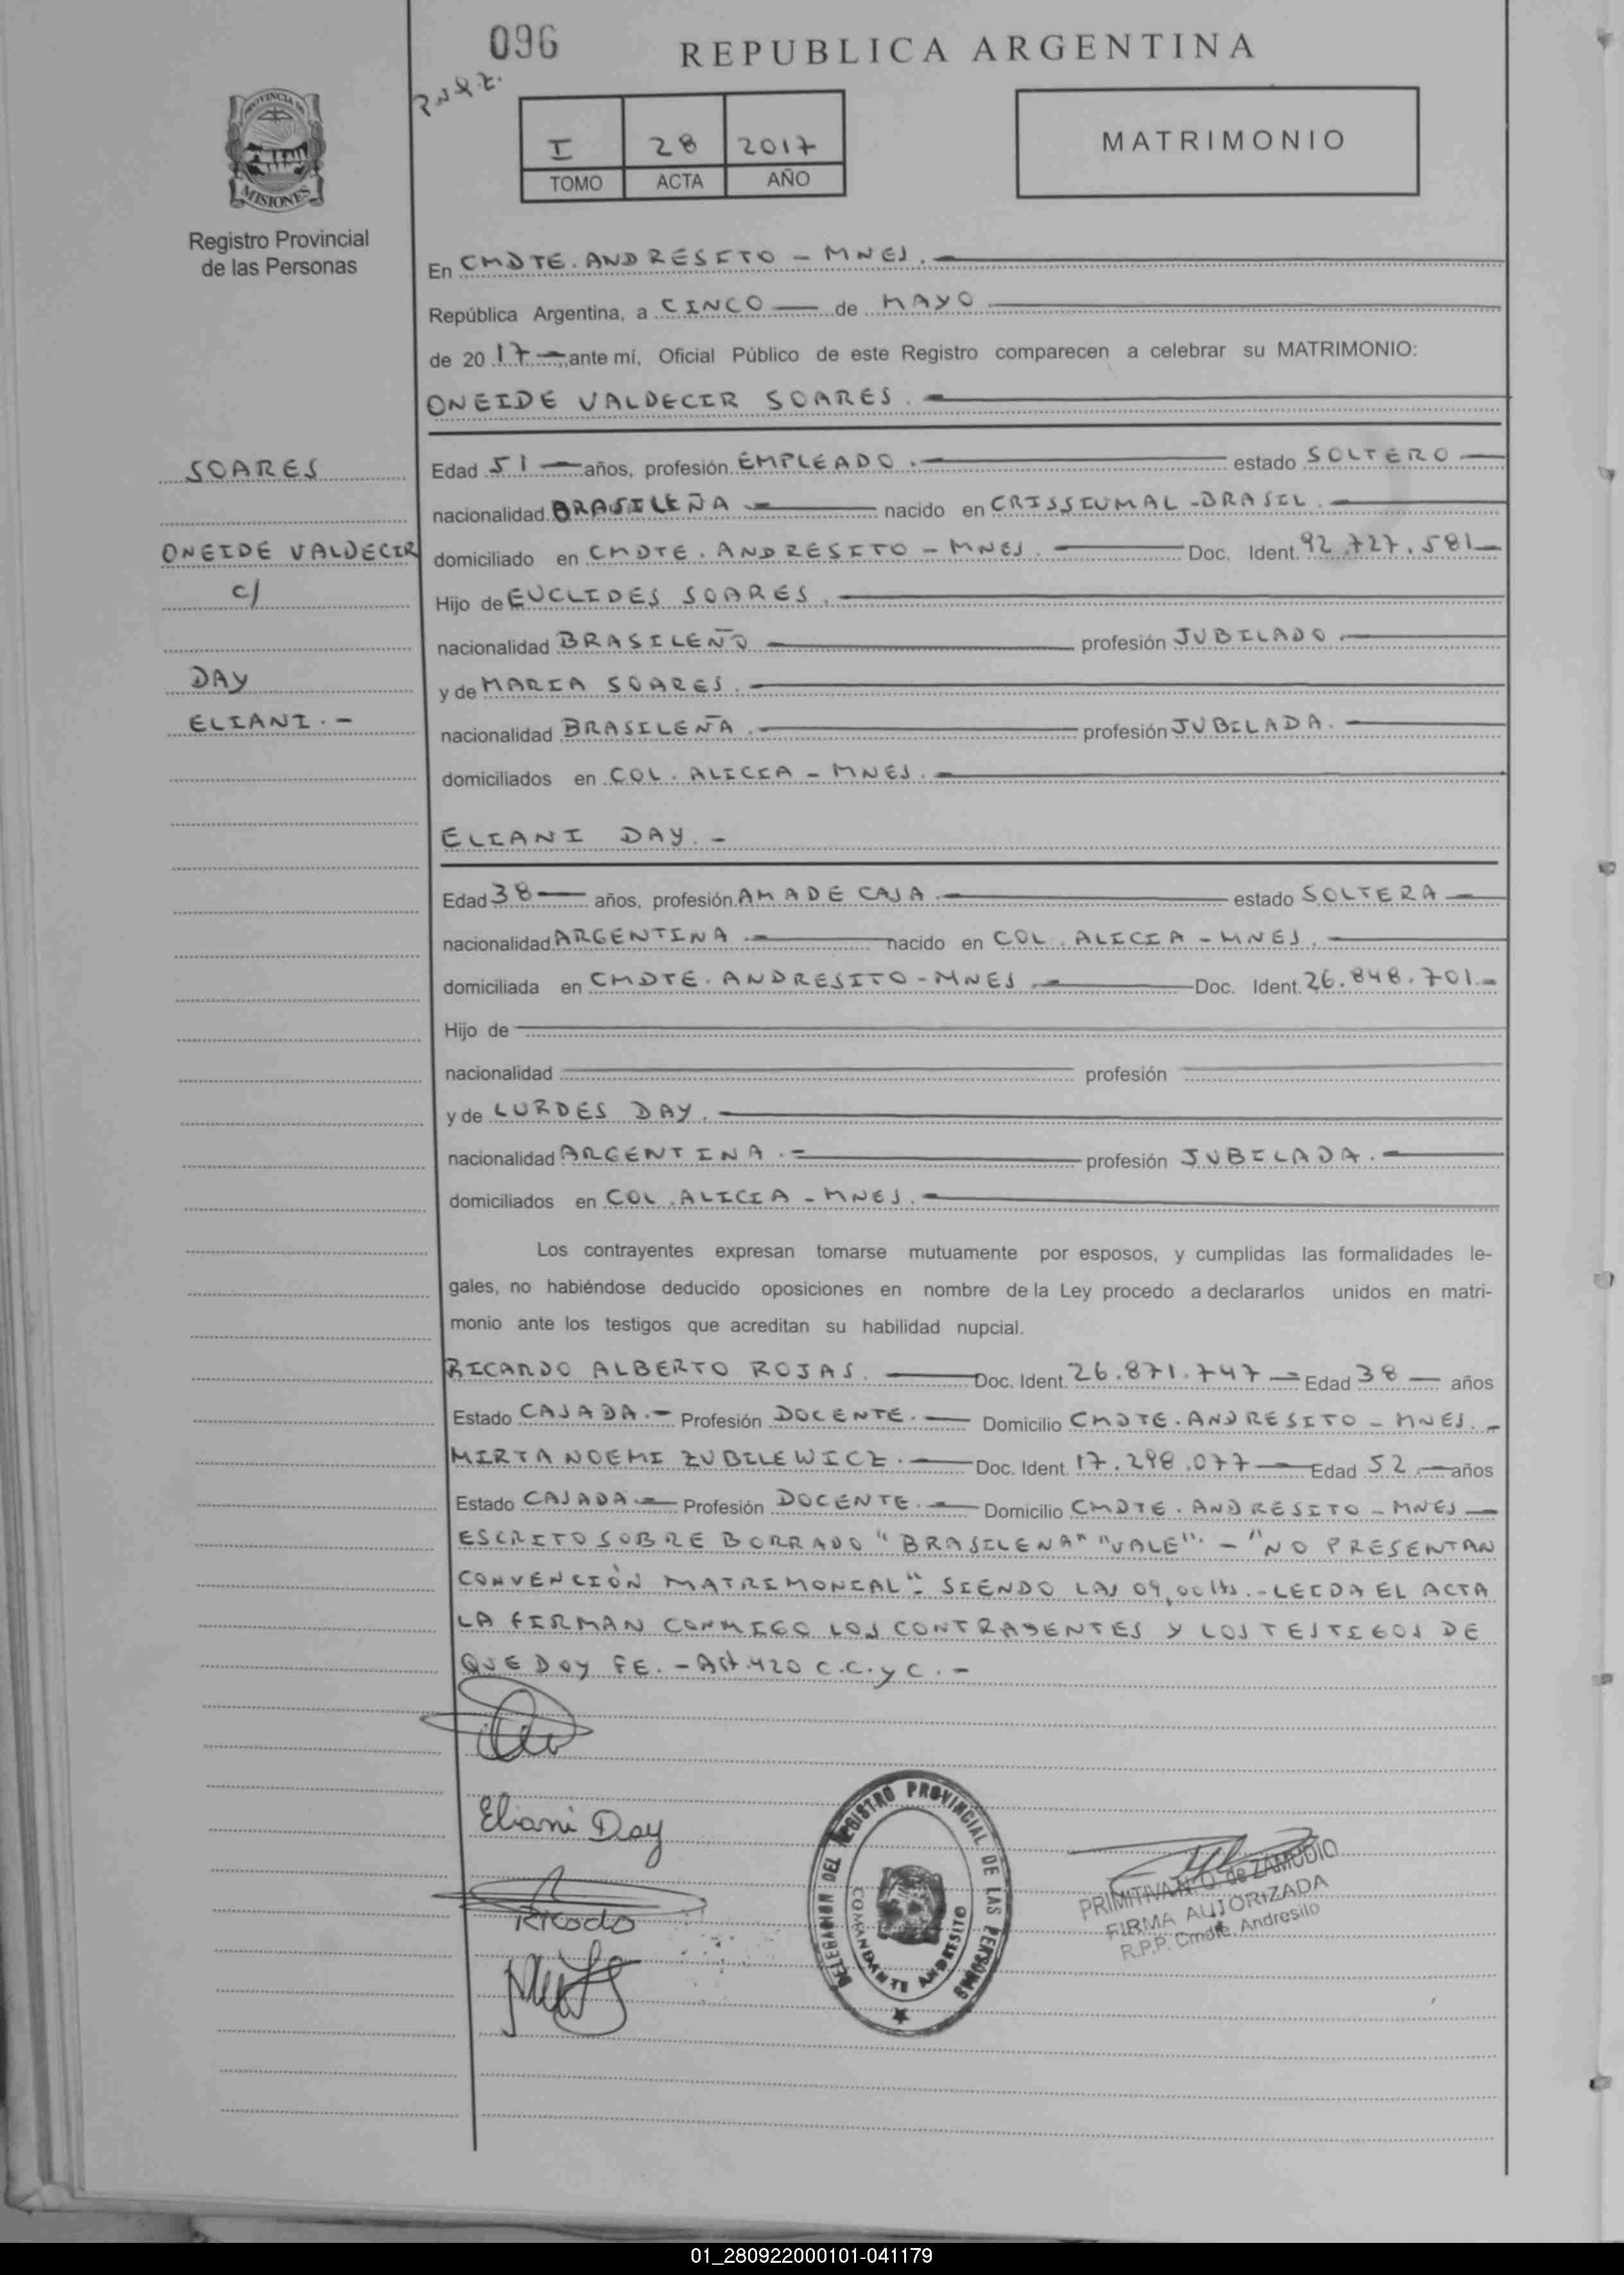 096
REPUBLICA ARGENTINA
I 28 2017
TOMO ACTA AÑO
MATRIMONIO
PROVINCIA DE
MISIONES
Registro Provincial
de las Personas
En CMDTE. ANDRESITO - MNES.
República Argentina, a CINCO de MAYO
de 2017 ante mí, Oficial Público de este Registro comparecen a celebrar su MATRIMONIO:
ONEIDE VALDECIR SOARES.
SOARES
ONEIDE VALDECIR
c/
DAY
ELIANI.-
Edad 51 años, profesión EMPLEADO. estado SOLTERO
nacionalidad BRASILEÑA nacido en CRISSIUMAL - BRASIL.
domiciliado en CMDTE. ANDRESITO - MNES. Doc. Ident. 92.727.581
Hijo de EUCLIDES SOARES.
nacionalidad BRASILEÑO profesión JUBILADO.
y de MARIA SOARES.
nacionalidad BRASILEÑA. profesión JUBILADA.
domiciliados en COL. ALICIA - MNES.
ELIANI DAY.-
Edad 38 años, profesión AMA DE CASA. estado SOLTERA
nacionalidad ARGENTINA. nacido en COL. ALICIA - MNES.
domiciliada en CMDTE. ANDRESITO - MNES. Doc. Ident. 26.848.701-
Hijo de
nacionalidad profesión
y de LURDES DAY.
nacionalidad ARGENTINA.- profesión JUBILADA.
domiciliados en COL. ALICIA - MNES.
Los contrayentes expresan tomarse mutuamente por esposos, y cumplidas las formalidades le-
gales, no habiéndose deducido oposiciones en nombre de la Ley procedo a declararlos unidos en matri-
monio ante los testigos que acreditan su habilidad nupcial.
RICARDO ALBERTO ROJAS. Doc. Ident. 26.871.747 Edad 38 años
Estado CASADA.- Profesión DOCENTE. Domicilio CMDTE. ANDRESITO - MNES.-
MIRTA NOEMI ZUBILEWICZ. Doc. Ident. 17.298.077 Edad 52 años
Estado CASADA. Profesión DOCENTE. Domicilio CMDTE. ANDRESITO - MNES
ESCRITO SOBRE BORRADO "BRASILENA" "VALE".- "NO PRESENTAN
CONVENCIÓN MATRIMONIAL". SIENDO LAS 09,00 Hs.- LEIDA EL ACTA
LA FIRMAN CONMIGO LOS CONTRAYENTES Y LOS TESTIGOS DE
QUE DOY FE. - Art. 420 C.C. y C. -
Eliani Day
Ricado
DELEGACION DEL REGISTRO PROVINCIAL DE LAS PERSONAS
COMANDANTE ANDRESITO
PRIMITIVA N. D. de ZAMUDIO
FIRMA AUTORIZADA
R.P.P. Cmdte. Andresito
01_280922000101-041179